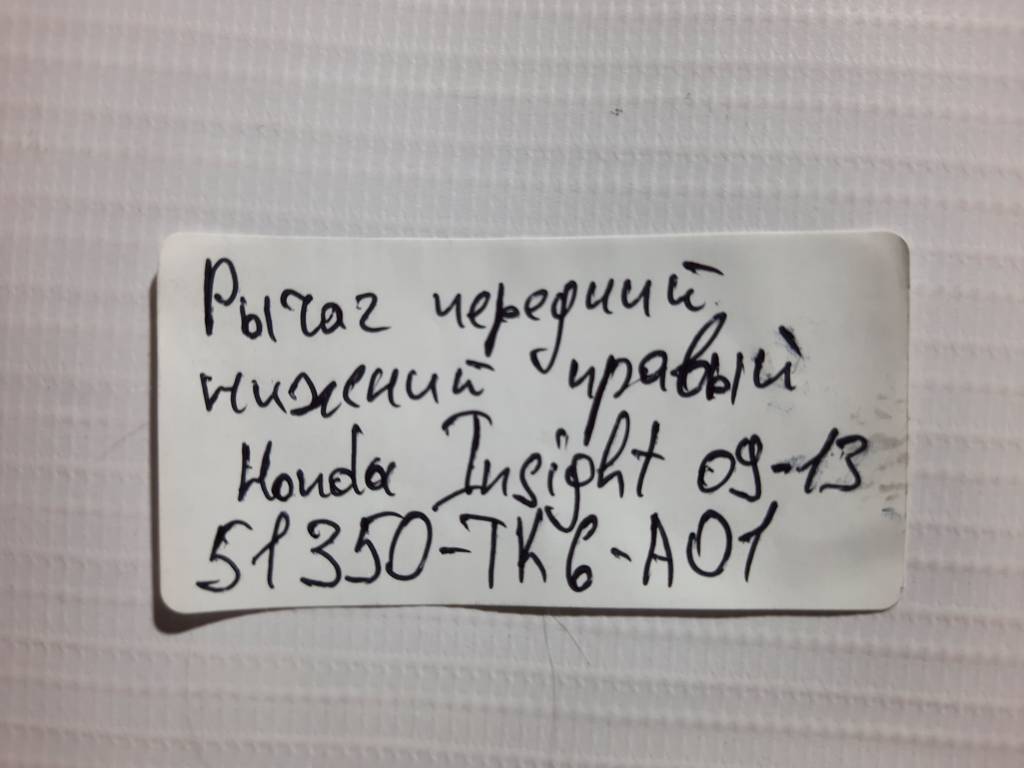 Рычаг передний
нижний правый
Honda Insight 09-13
51350-TK6-A01